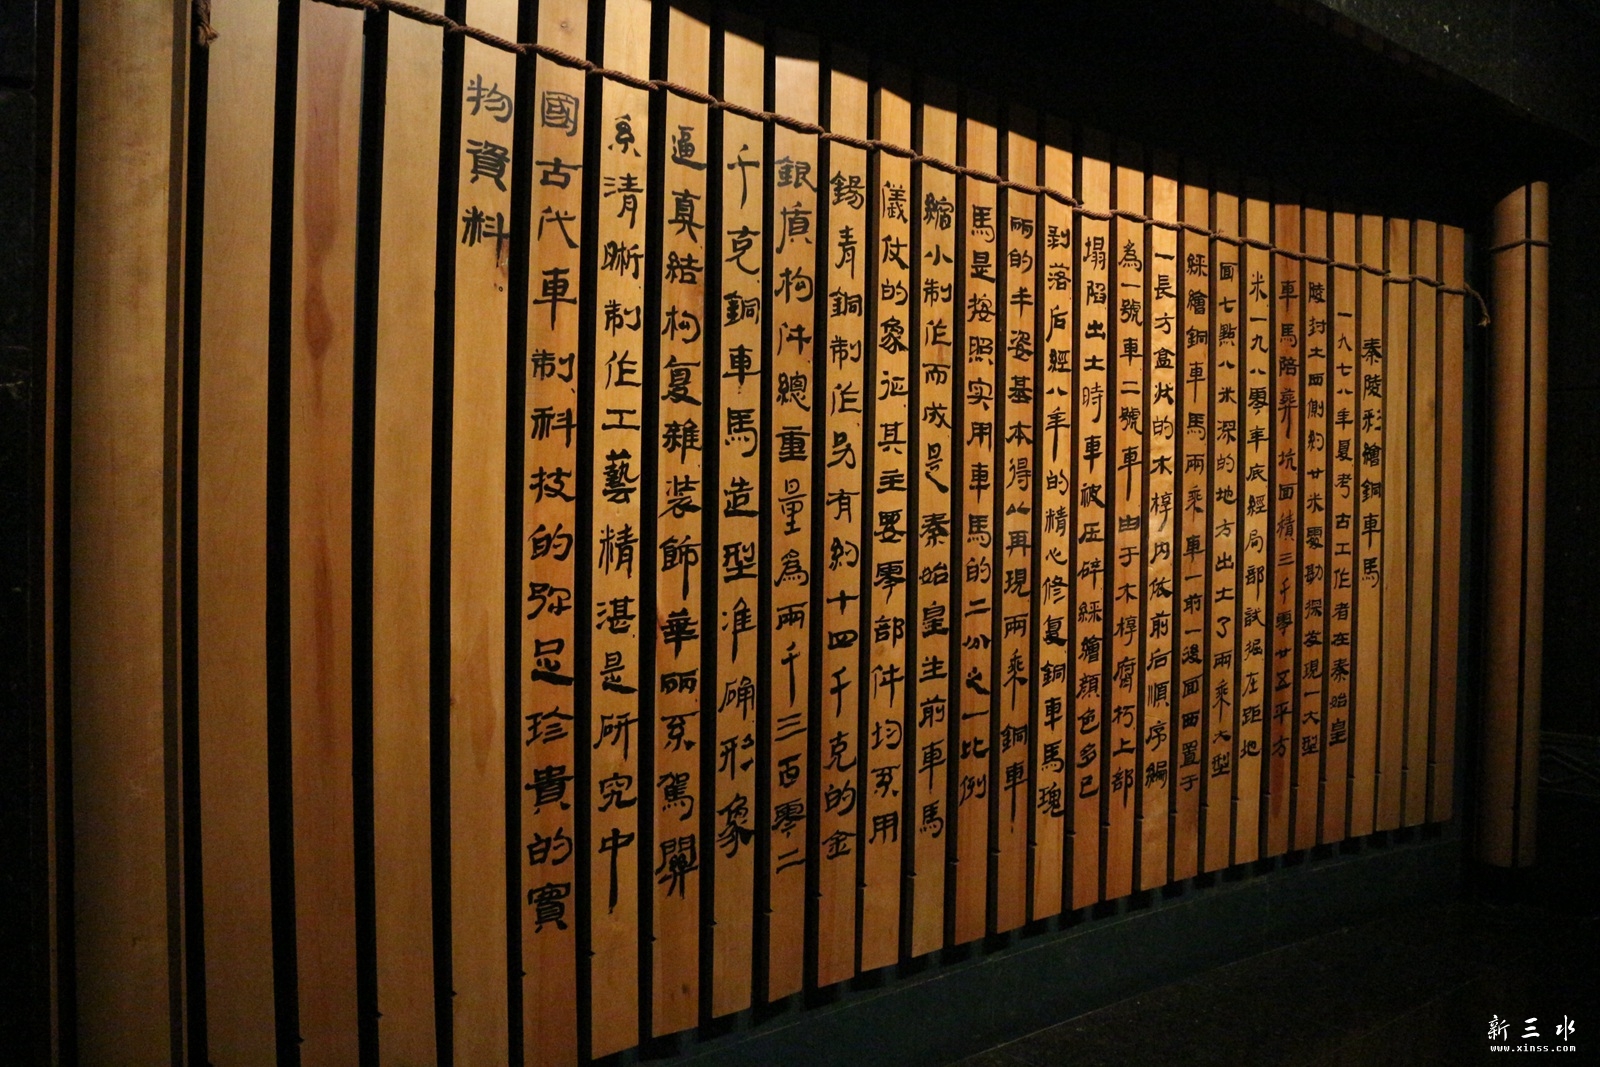 秦陵彩繪銅車馬
一九七八年夏考古工作者在秦始皇
陵封土西側約廿米處勘探发現一大型
車馬陪葬坑面積三千零廿五平方
米一九八零年底經局部試掘在距地
面七點八米深的地方出土了兩乘大型
綵繪銅車馬兩乘車一前一後面西置于
一長方盒状的木椁内依前后順序編
為一號車二號車由于木椁腐朽上部
塌陷出土時車被压碎綵繪顔色多已
剥落后經八年的精心修复銅車馬瑰
丽的丰姿基本得以再現兩乘銅車
馬是按照实用車馬的二分之一比例
縮小制作而成是秦始皇生前車馬
儀仗的象征其主要零部件均系用
錫青銅制作另有約十四千克的金
銀質构件總重量為兩千三百零二
千克銅車馬造型准确形象
逼真結构复雜装飾華丽系駕關
系清晰制作工藝精湛是研究中
國古代車制科技的弥足珍貴的實
物資料
新三水
www.xinss.com